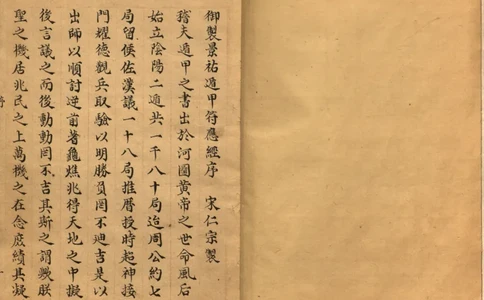 御製景祐遁甲符應經序　宋仁宗製
稽夫遁甲之書出於河圖黃帝之世命風后
始立陰陽二遁共一千八十局迨周公約七
局留侯佐漢議一十八局推曆授時超神接
門耀德觀兵取驗以明勝負罔不迪吉是以
出師以順討逆前著龜燋兆得天地之中擬
後言議之而後動動罔不吉其斯之謂歟朕
聖之機居兆民之上萬機之在念庶績其凝
序